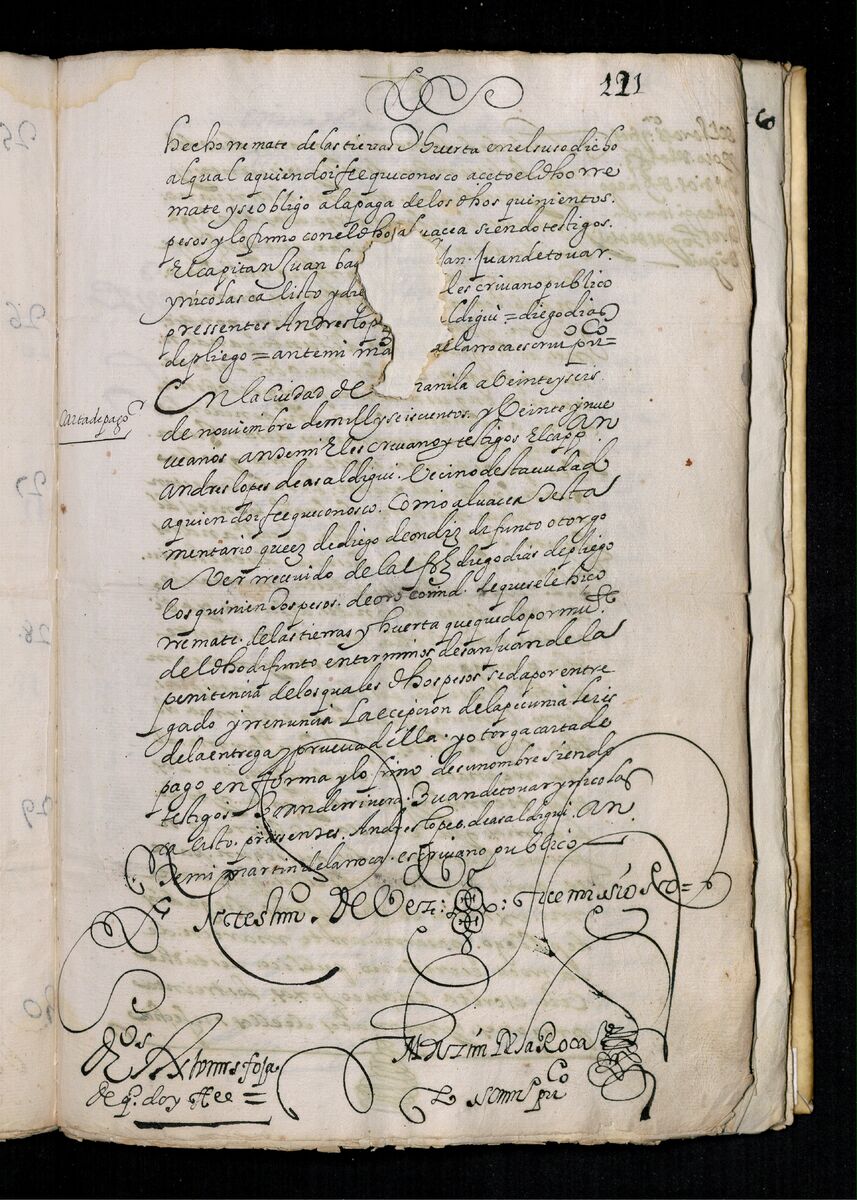 121
hecho rremate de las tierras Y huerta en el suso dicho
al qual a quien doi fee que conosco aceto el dho rre
mate y se obligo a la paga de los dhos quinientos
pesos y lo firmo con el dho al vacea siendo testigos.
El capitan Juan ba an. Juan de tovar.
y nicolas calisto y die el escrivano publico
pressentes Andres lop aldigui = diego dias
de pliego = ante mi ma de la rroca escriuo puco =
Carta de pago
En la Ciudad de manila a Veinte y seis
de noviembre de mill y seiscientos. y Veinte y nue
ve anos ante mi El escrivano y testigos El capp an
Andres lopes de asaldigui. Vecino desta ciudad
a quien doi fee que conosco. Como alvacea Testa
mentario que es de diego de ondiz difunto otorgo
aver rrecivido del alfrz diego dias de pliego
los quinientos pesos. de oro comnd. de que se le hiço
rremate. de las tierras y huerta que quedo por mu te
del dho difunto en terminos de san Juan de la
penitencia de los quales dhos pesos se da por entre
gado y rrenuncia La ecepcion de la pecunia leies
de la entrega y prueva de lla. y otorga carta de
pago en forma y lo firmo de su nombre siendo
testigos = Juan de rrivera. Juan de tovar y nicolas
calisto. pressentes. Andres lopes. de asaldigui. An
te mi martin de la rroca. escrivano publico
En testimo. de Verd: fice mi sigo
dros
de q. doy ffee =
Martin de la Roca
escriuo puco